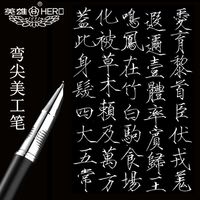 英雄 HERO
弯尖美工笔
愛育黎首臣伏戎羌
遐邇壹體率賓歸王
鳴鳳在竹白駒食場
化被草木賴及萬方
蓋此身髮四大五常